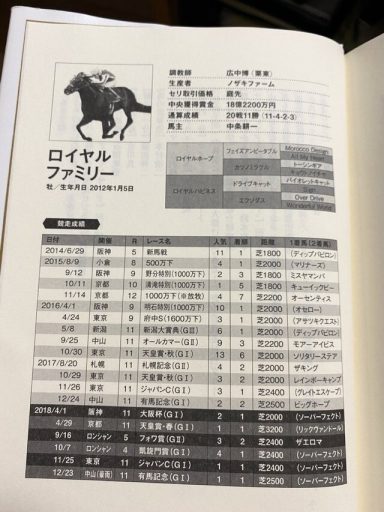 調教師 広中博(栗東)
生産者 ノザキファーム
セリ取引価格 庭先
中央獲得賞金 18億2200万円
通算成績 20戦11勝 (11-4-2-3)
馬主 中条耕一
ロイヤル
ファミリー
牡/生年月日 2012年1月5日
ロイヤルホープ
フェイアンビータブル
Morocco Design
All My Heart
カツノミラクル
トーシンギア
ロイヤルハピネス
ドライブキャット
バイオレットキャット
エクソダス
Over Drive
Wonderful World
競走成績
日付 開催 R レース名 人気 着順 距離 1番馬(2着馬)
2014/6/29 阪神 5 新馬戦 11 1 芝1800 (ディップバビロン)
2015/8/9 小倉 8 500万下 4 1 芝2000 (マリナーズ)
9/12 阪神 9 野分特別(1000万下) 3 7 芝1800 ミスヤマンバ
10/11 京都 10 清滝特別(1000万下) 5 1 芝1800 キューイックビー
11/14 京都 12 1000万下(※放牧) 7 2 芝2200 オーセンティス
2016/4/1 阪神 9 明石特別(1000万下) 10 1 芝2000 (オセロー)
4/24 東京 9 府中S(1600万下) 3 1 芝2000 (アサツキクエスト)
5/8 新潟 11 新潟大賞典(GⅢ) 6 1 芝2000 (ディップバビロン)
9/25 中山 11 オールカマー(GⅡ) 9 3 芝2200 モアーアイビス
10/30 東京 11 天皇賞・秋(GⅠ) 13 6 芝2000 ソリタリーステア
2017/8/20 札幌 11 札幌記念(GⅡ) 4 2 芝2000 ザキング
10/29 東京 11 天皇賞・秋(GⅠ) 4 3 芝2000 レインボーキャンプ
11/26 東京 11 ジャパンC(GⅠ) 2 1 芝2400 (グレイトエスケープ)
12/24 中山 11 有馬記念(GⅠ) 2 2 芝2500 ビッグホープ
2018/4/1 阪神 11 大阪杯(GⅠ) 2 1 芝2000 (ソーパーフェクト)
4/29 京都 11 天皇賞・春(GⅠ) 1 1 芝3200 (リックヴァンドール)
9/16 ロンシャン 11 フォワ賞(GⅡ) 3 2 芝2400 ザエロマ
10/7 ロンシャン 4 凱旋門賞(GⅠ) 4 1 芝2400 (ソーパーフェクト)
11/25 東京 11 ジャパンC(GⅠ) 1 1 芝2400 (ソーパーフェクト)
12/23 中山(豪雨) 11 有馬記念(GⅠ) 1 1 芝2500 (ソーパーフェクト)